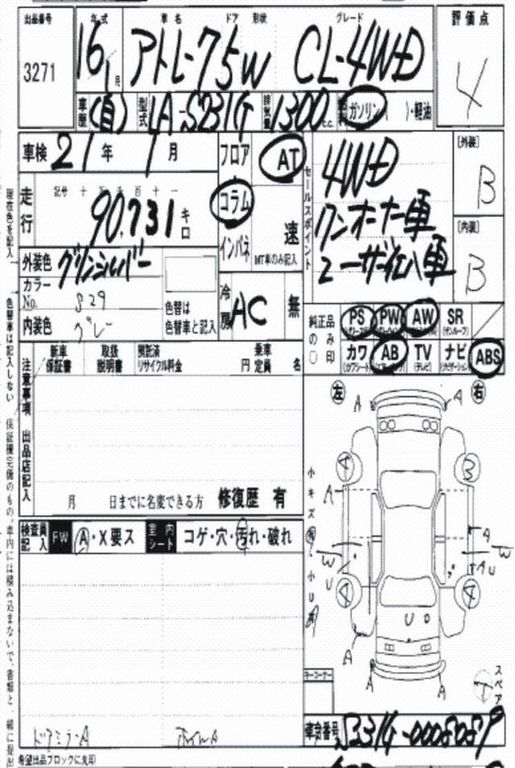 出品番号 年式 車名 ドア 形状 グレード 評価点
3271 16 1月 アトレー75W CL-4WD 4
車歴 (自) 型式 LA-S231G 排気 1300 c.c. ガソリン ( )・軽油
車検 21年 1月 フロア AT
セールスポイント
4WD
ワンオーナー車
ユーザー仕入車
[外装] B
[内装] B
走行 90,731 キロ
コラム
インパネ
速
MT車のみ記入
外装色 グリーンシルバー
カラーNo. S29
内装色 グレー
色替は
色替車と記入
冷房 AC 無
純正品のみ○印
PS PW AW SR (サンルーフ)
カワ AB TV (テレビ) ナビ ABS
注意事項 出品店記入
新車保証書 取扱説明書 預託済リサイクル料金 円 乗車定員 名
月 日までに名変できる方 修復歴 有
検査員記入 FW A・X要ス 室内シート コゲ・穴・汚れ・破れ
左 右
A A
4 3
A
A
W W
A U
4 4
U
A A A
スペア
コーナー
ドアミラーA ホイルA
車台番号 S231G-0008089
希望出品ブロックに丸印
現在色を記入
色替車は記入しない
保証書完備のもの、車内には積み込まないで、書類と一緒に提出